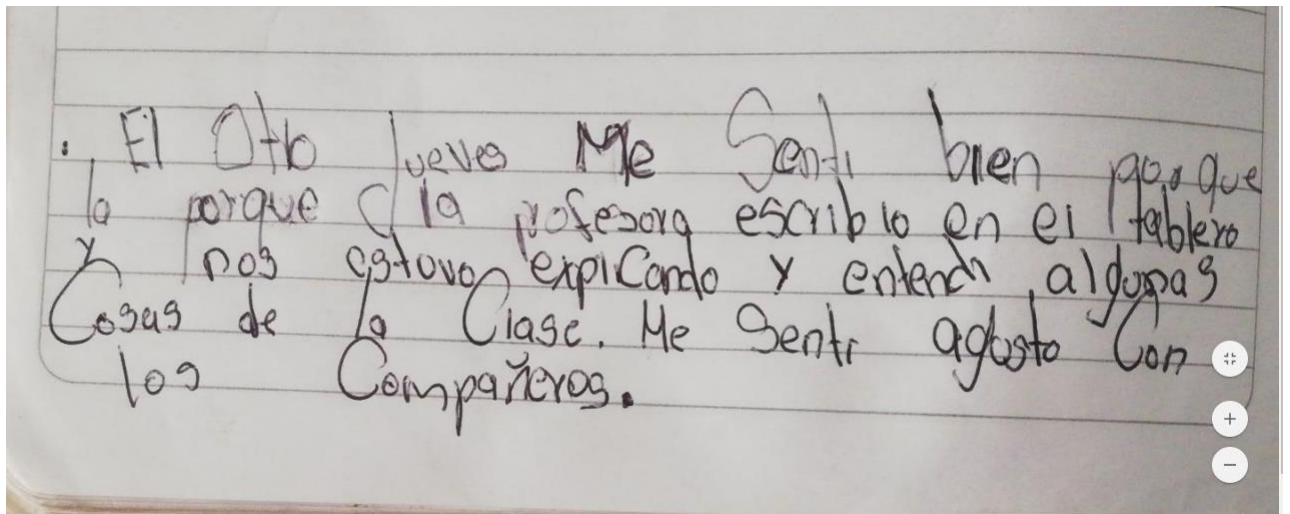 . El Otro Jueves Me Senti bien porque
la porque la profesora escribio en el tablero
y nos estuvo expicando y entendi algunas
Cosas de la Clase. Me Senti agusto Con
los Compañeros.